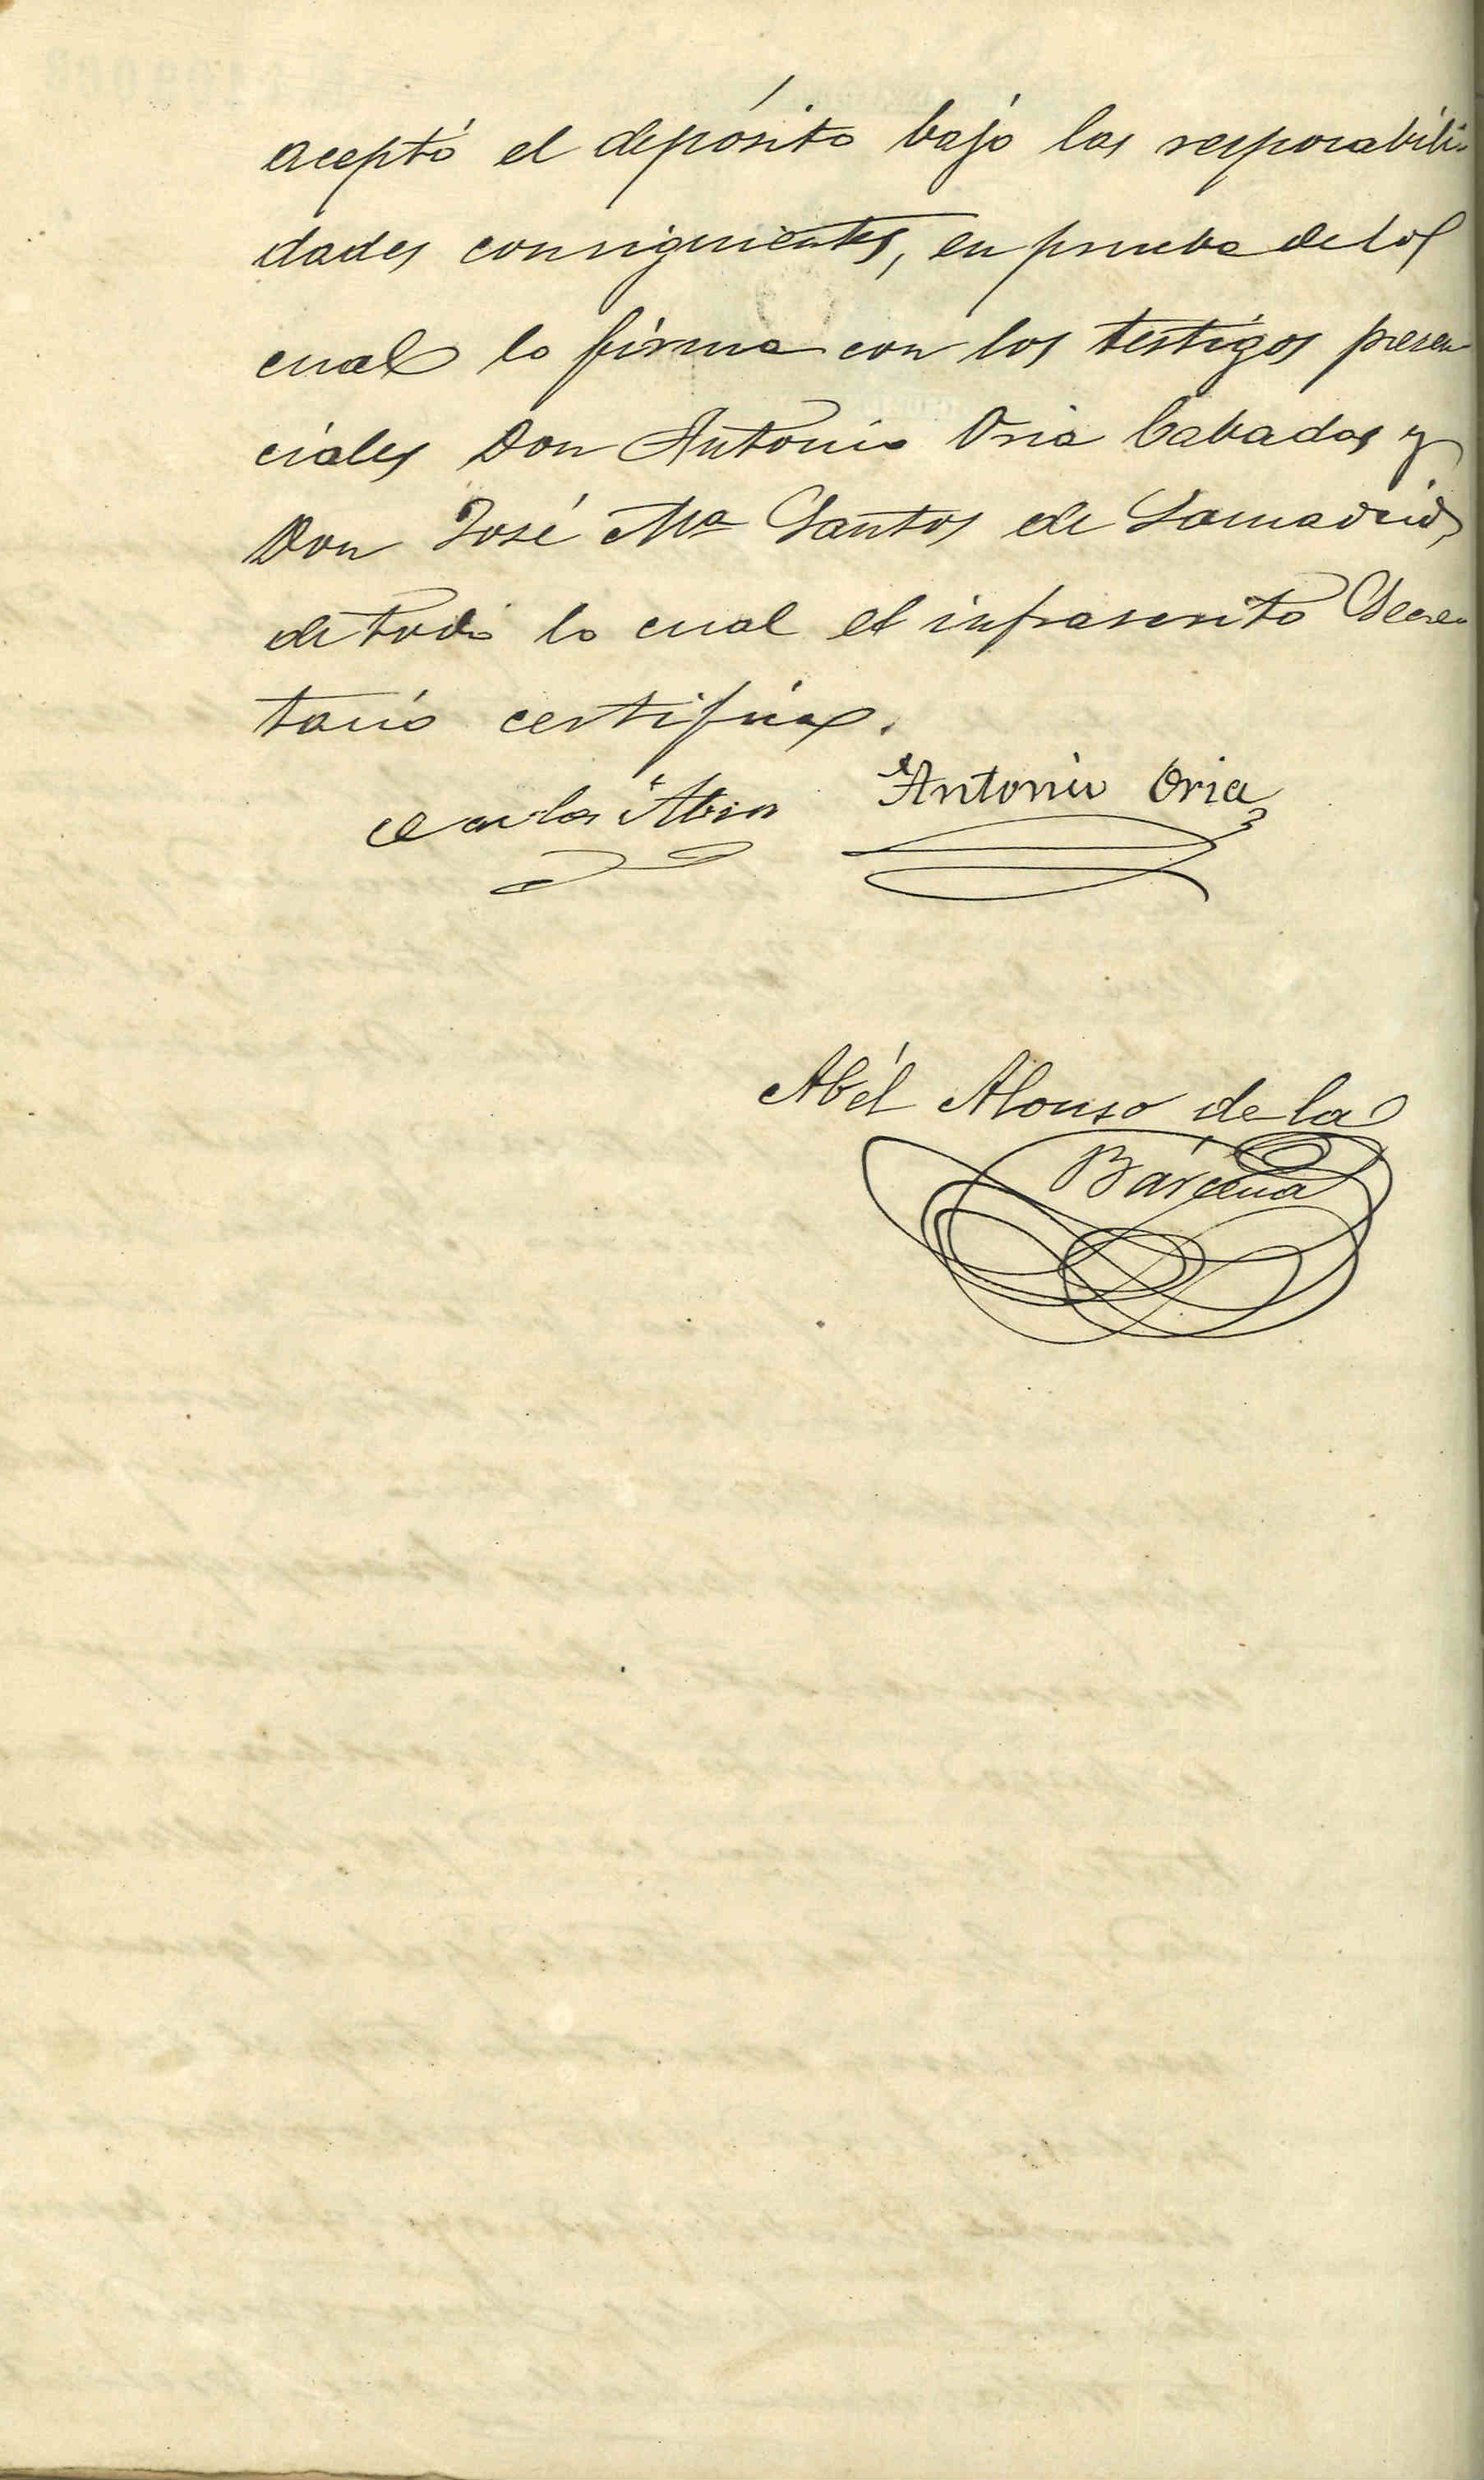 aceptó el depósito bajo las responabili-
dades consiguientes, en prueba de lo
cual lo firma con los testigos presen
ciales Don Antonio Oria Cabadas y
Don José Mª Santos de Lamadrid,
de todo lo cual el infrascrito Secre-
tario certifica.
Antonio Oria
Abél Alonso de la
Bárcena